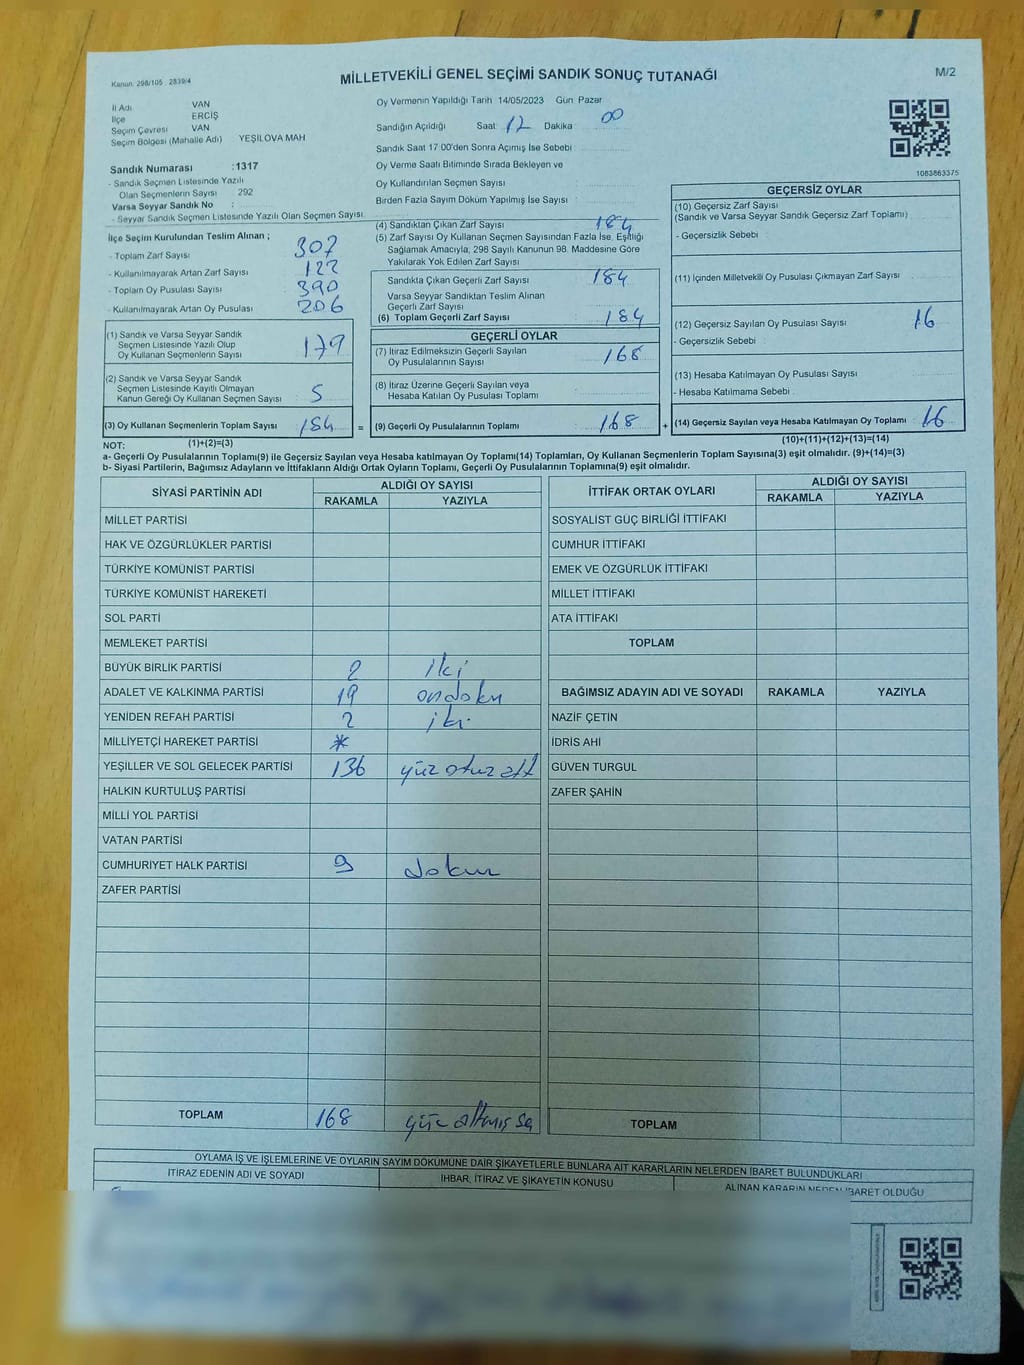 Kanun: 298/105 2839/4
MİLLETVEKİLİ GENEL SEÇİMİ SANDIK SONUÇ TUTANAĞI
M/2
İl Adı VAN
İlçe ERCİŞ
Seçim Çevresi VAN
Seçim Bölgesi (Mahalle Adı) YEŞİLOVA MAH
Sandık Numarası :1317
- Sandık Seçmen Listesinde Yazılı
Olan Seçmenlerin Sayısı 292
Varsa Seyyar Sandık No :
- Seyyar Sandık Seçmen Listesinde Yazılı Olan Seçmen Sayısı
Oy Vermenin Yapıldığı Tarih 14/05/2023 Gün Pazar
Sandığın Açıldığı Saat 12 Dakika 00
Sandık Saat 17 00'den Sonra Açımış İse Sebebi
Oy Verme Saati Bitiminde Sırada Bekleyen ve
Oy Kullandırılan Seçmen Sayısı
Birden Fazla Sayım Döküm Yapılmış İse Sayısı :
1083863375
İlçe Seçim Kurulundan Teslim Alınan ;
- Toplam Zarf Sayısı 307
- Kullanılmayarak Artan Zarf Sayısı 122
- Toplam Oy Pusulası Sayısı 390
- Kullanılmayarak Artan Oy Pusulası 206
(1) Sandık ve Varsa Seyyar Sandık
Seçmen Listesinde Yazılı Olup
Oy Kullanan Seçmenlerin Sayısı 179
(2) Sandık ve Varsa Seyyar Sandık
Seçmen Listesinde Kayıtlı Olmayan
Kanun Gereği Oy Kullanan Seçmen Sayısı : 5
(3) Oy Kullanan Seçmenlerin Toplam Sayısı : 184 =
(4) Sandıktan Çıkan Zarf Sayısı 184
(5) Zarf Sayısı Oy Kullanan Seçmen Sayısından Fazla İse, Eşitliği
Sağlamak Amacıyla, 298 Sayılı Kanunun 98. Maddesine Göre
Yakılarak Yok Edilen Zarf Sayısı
Sandıkta Çıkan Geçerli Zarf Sayısı 184
Varsa Seyyar Sandıktan Teslim Alınan
Geçerli Zarf Sayısı
(6) Toplam Geçerli Zarf Sayısı : 184
GEÇERLİ OYLAR
(7) İtiraz Edilmeksizin Geçerli Sayılan
Oy Pusulalarının Sayısı 168
(8) İtiraz Üzerine Geçerli Sayılan veya
Hesaba Katılan Oy Pusulası Toplamı
(9) Geçerli Oy Pusulalarının Toplamı : 168 +
GEÇERSİZ OYLAR
(10) Geçersiz Zarf Sayısı
(Sandık ve Varsa Seyyar Sandık Geçersiz Zarf Toplamı)
- Geçersizlik Sebebi :
(11) İçinden Milletvekili Oy Pusulası Çıkmayan Zarf Sayısı
(12) Geçersiz Sayılan Oy Pusulası Sayısı 16
- Geçersizlik Sebebi :
(13) Hesaba Katılmayan Oy Pusulası Sayısı
- Hesaba Katılmama Sebebi
(14) Geçersiz Sayılan veya Hesaba Katılmayan Oy Toplamı : 16
NOT: (1)+(2)=(3)
(10)+(11)+(12)+(13)=(14)
a- Geçerli Oy Pusulalarının Toplamı(9) ile Geçersiz Sayılan veya Hesaba katılmayan Oy Toplamı(14) Toplamları, Oy Kullanan Seçmenlerin Toplam Sayısına(3) eşit olmalıdır. (9)+(14)=(3)
b- Siyasi Partilerin, Bağımsız Adayların ve İttifakların Aldığı Ortak Oyların Toplamı, Geçerli Oy Pusulalarının Toplamına(9) eşit olmalıdır.
SİYASİ PARTİNİN ADI ALDIĞI OY SAYISI
RAKAMLA YAZIYLA
MİLLET PARTİSİ
HAK VE ÖZGÜRLÜKLER PARTİSİ
TÜRKİYE KOMÜNİST PARTİSİ
TÜRKİYE KOMÜNİST HAREKETİ
SOL PARTİ
MEMLEKET PARTİSİ
BÜYÜK BİRLİK PARTİSİ 2 iki
ADALET VE KALKINMA PARTİSİ 19 ondoku
YENİDEN REFAH PARTİSİ 2 iki
MİLLİYETÇİ HAREKET PARTİSİ *
YEŞİLLER VE SOL GELECEK PARTİSİ 136 yüz otuz altı
HALKIN KURTULUŞ PARTİSİ
MİLLİ YOL PARTİSİ
VATAN PARTİSİ
CUMHURİYET HALK PARTİSİ 9 dokuz
ZAFER PARTİSİ
TOPLAM 168 yüz altmış se
İTTİFAK ORTAK OYLARI ALDIĞI OY SAYISI
RAKAMLA YAZIYLA
SOSYALİST GÜÇ BİRLİĞİ İTTİFAKI
CUMHUR İTTİFAKI
EMEK VE ÖZGÜRLÜK İTTİFAKI
MİLLET İTTİFAKI
ATA İTTİFAKI
TOPLAM
BAĞIMSIZ ADAYIN ADI VE SOYADI RAKAMLA YAZIYLA
NAZİF ÇETİN
İDRİS AHİ
GÜVEN TURGUL
ZAFER ŞAHİN
TOPLAM
OYLAMA İŞ VE İŞLEMLERİNE VE OYLARIN SAYIM DÖKÜMÜNE DAİR ŞİKAYETLERLE BUNLARA AİT KARARLARIN NELERDEN İBARET BULUNDUKLARI
İTİRAZ EDENİN ADI VE SOYADI İHBAR, İTİRAZ VE ŞİKAYETİN KONUSU ALINAN KARARIN NEDEN İBARET OLDUĞU